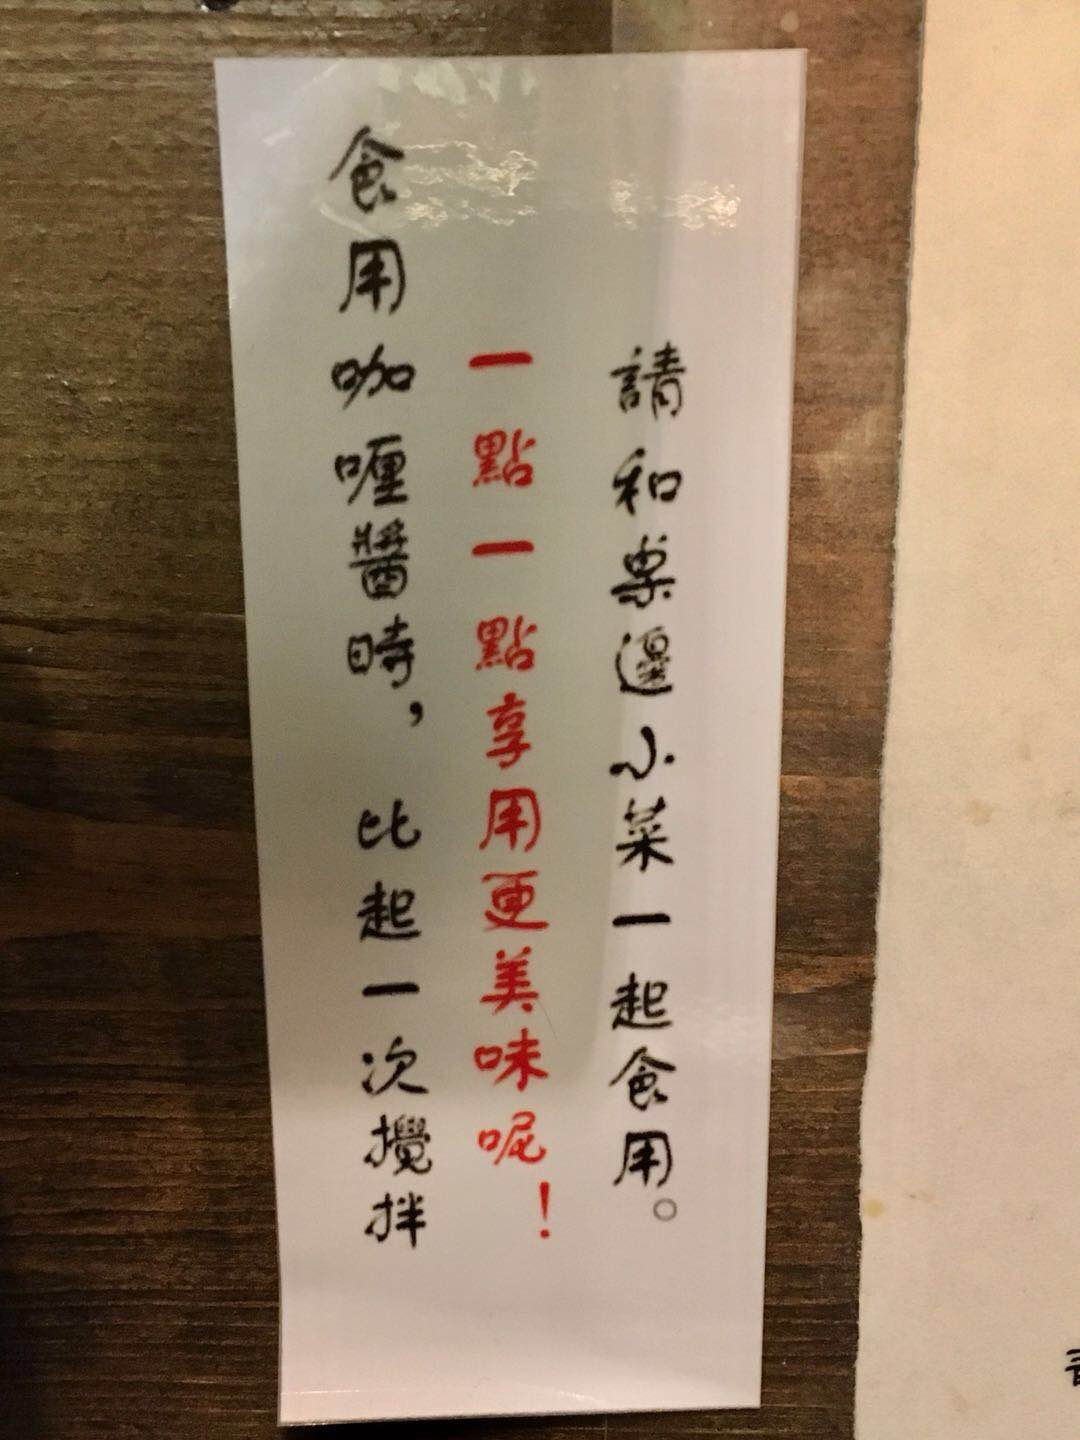 食用咖喱醬時，比起一次攪拌
一點一點享用更美味呢！
請和桌邊小菜一起食用。